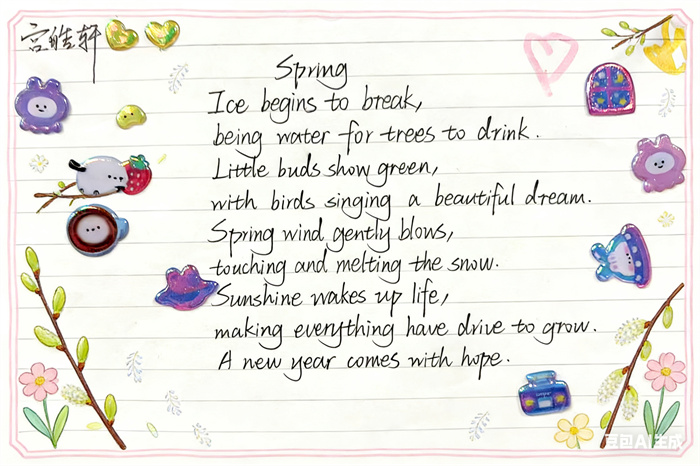 宫皓轩
Spring
Ice begins to break,
being water for trees to drink.
Little buds show green,
with birds singing a beautiful dream.
Spring wind gently blows,
touching and melting the snow.
Sunshine wakes up life,
making everything have drive to grow.
A new year comes with hope.
豆包AI生成